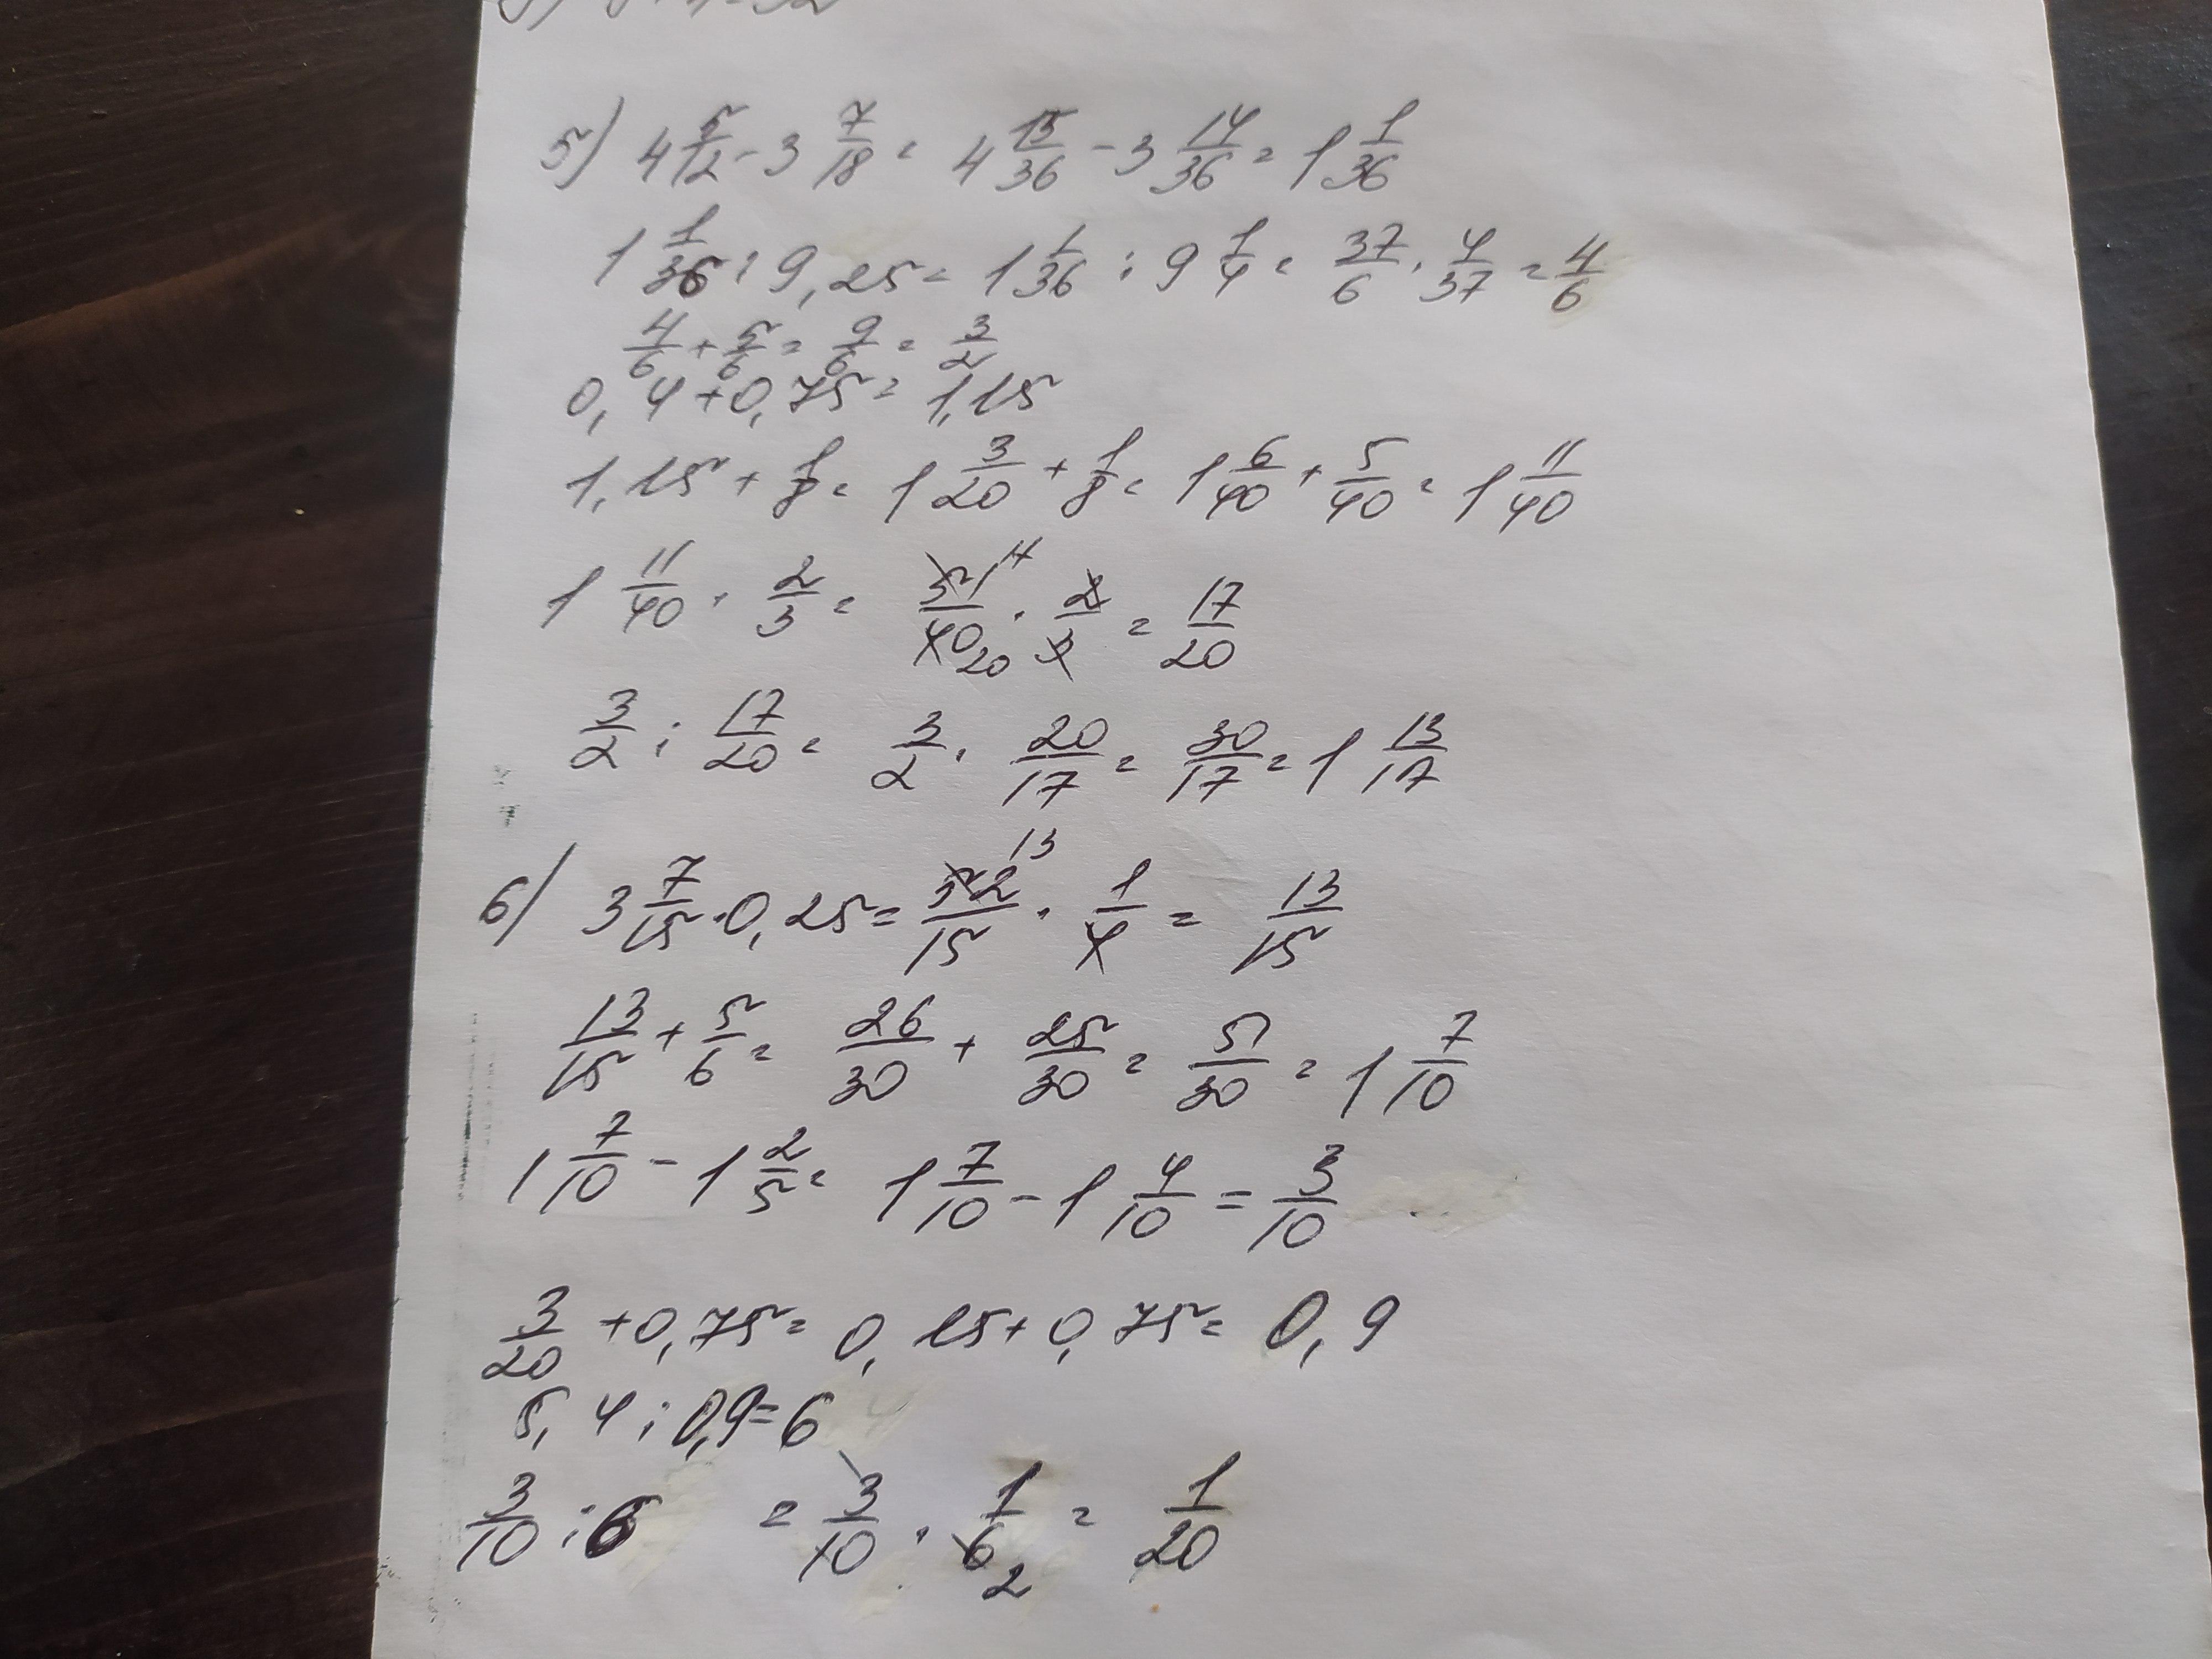 5) 4 5/12 - 3 7/18 = 4 15/36 - 3 14/36 = 1 1/36
1 1/36 : 9,25 = 1 1/36 : 9 1/4 = 37/6 · 4/37 = 4/6
4/6 + 5/6 = 9/6 = 3/2
0,4 + 0,75 = 1,15
1,15 + 1/8 = 1 3/20 + 1/8 = 1 6/40 + 5/40 = 1 11/40
1 11/40 · 2/3 = 51/40 · 2/3 = 17/20
3/2 : 17/20 = 3/2 · 20/17 = 30/17 = 1 13/17
6) 3 7/15 · 0,25 = 52/15 · 1/4 = 13/15
13/15 + 5/6 = 26/30 + 25/30 = 51/30 = 1 7/10
1 7/10 - 1 2/5 = 1 7/10 - 1 4/10 = 3/10
3/20 + 0,75 = 0,15 + 0,75 = 0,9
5,4 : 0,9 = 6
3/10 : 6 = 3/10 · 1/6 = 1/20